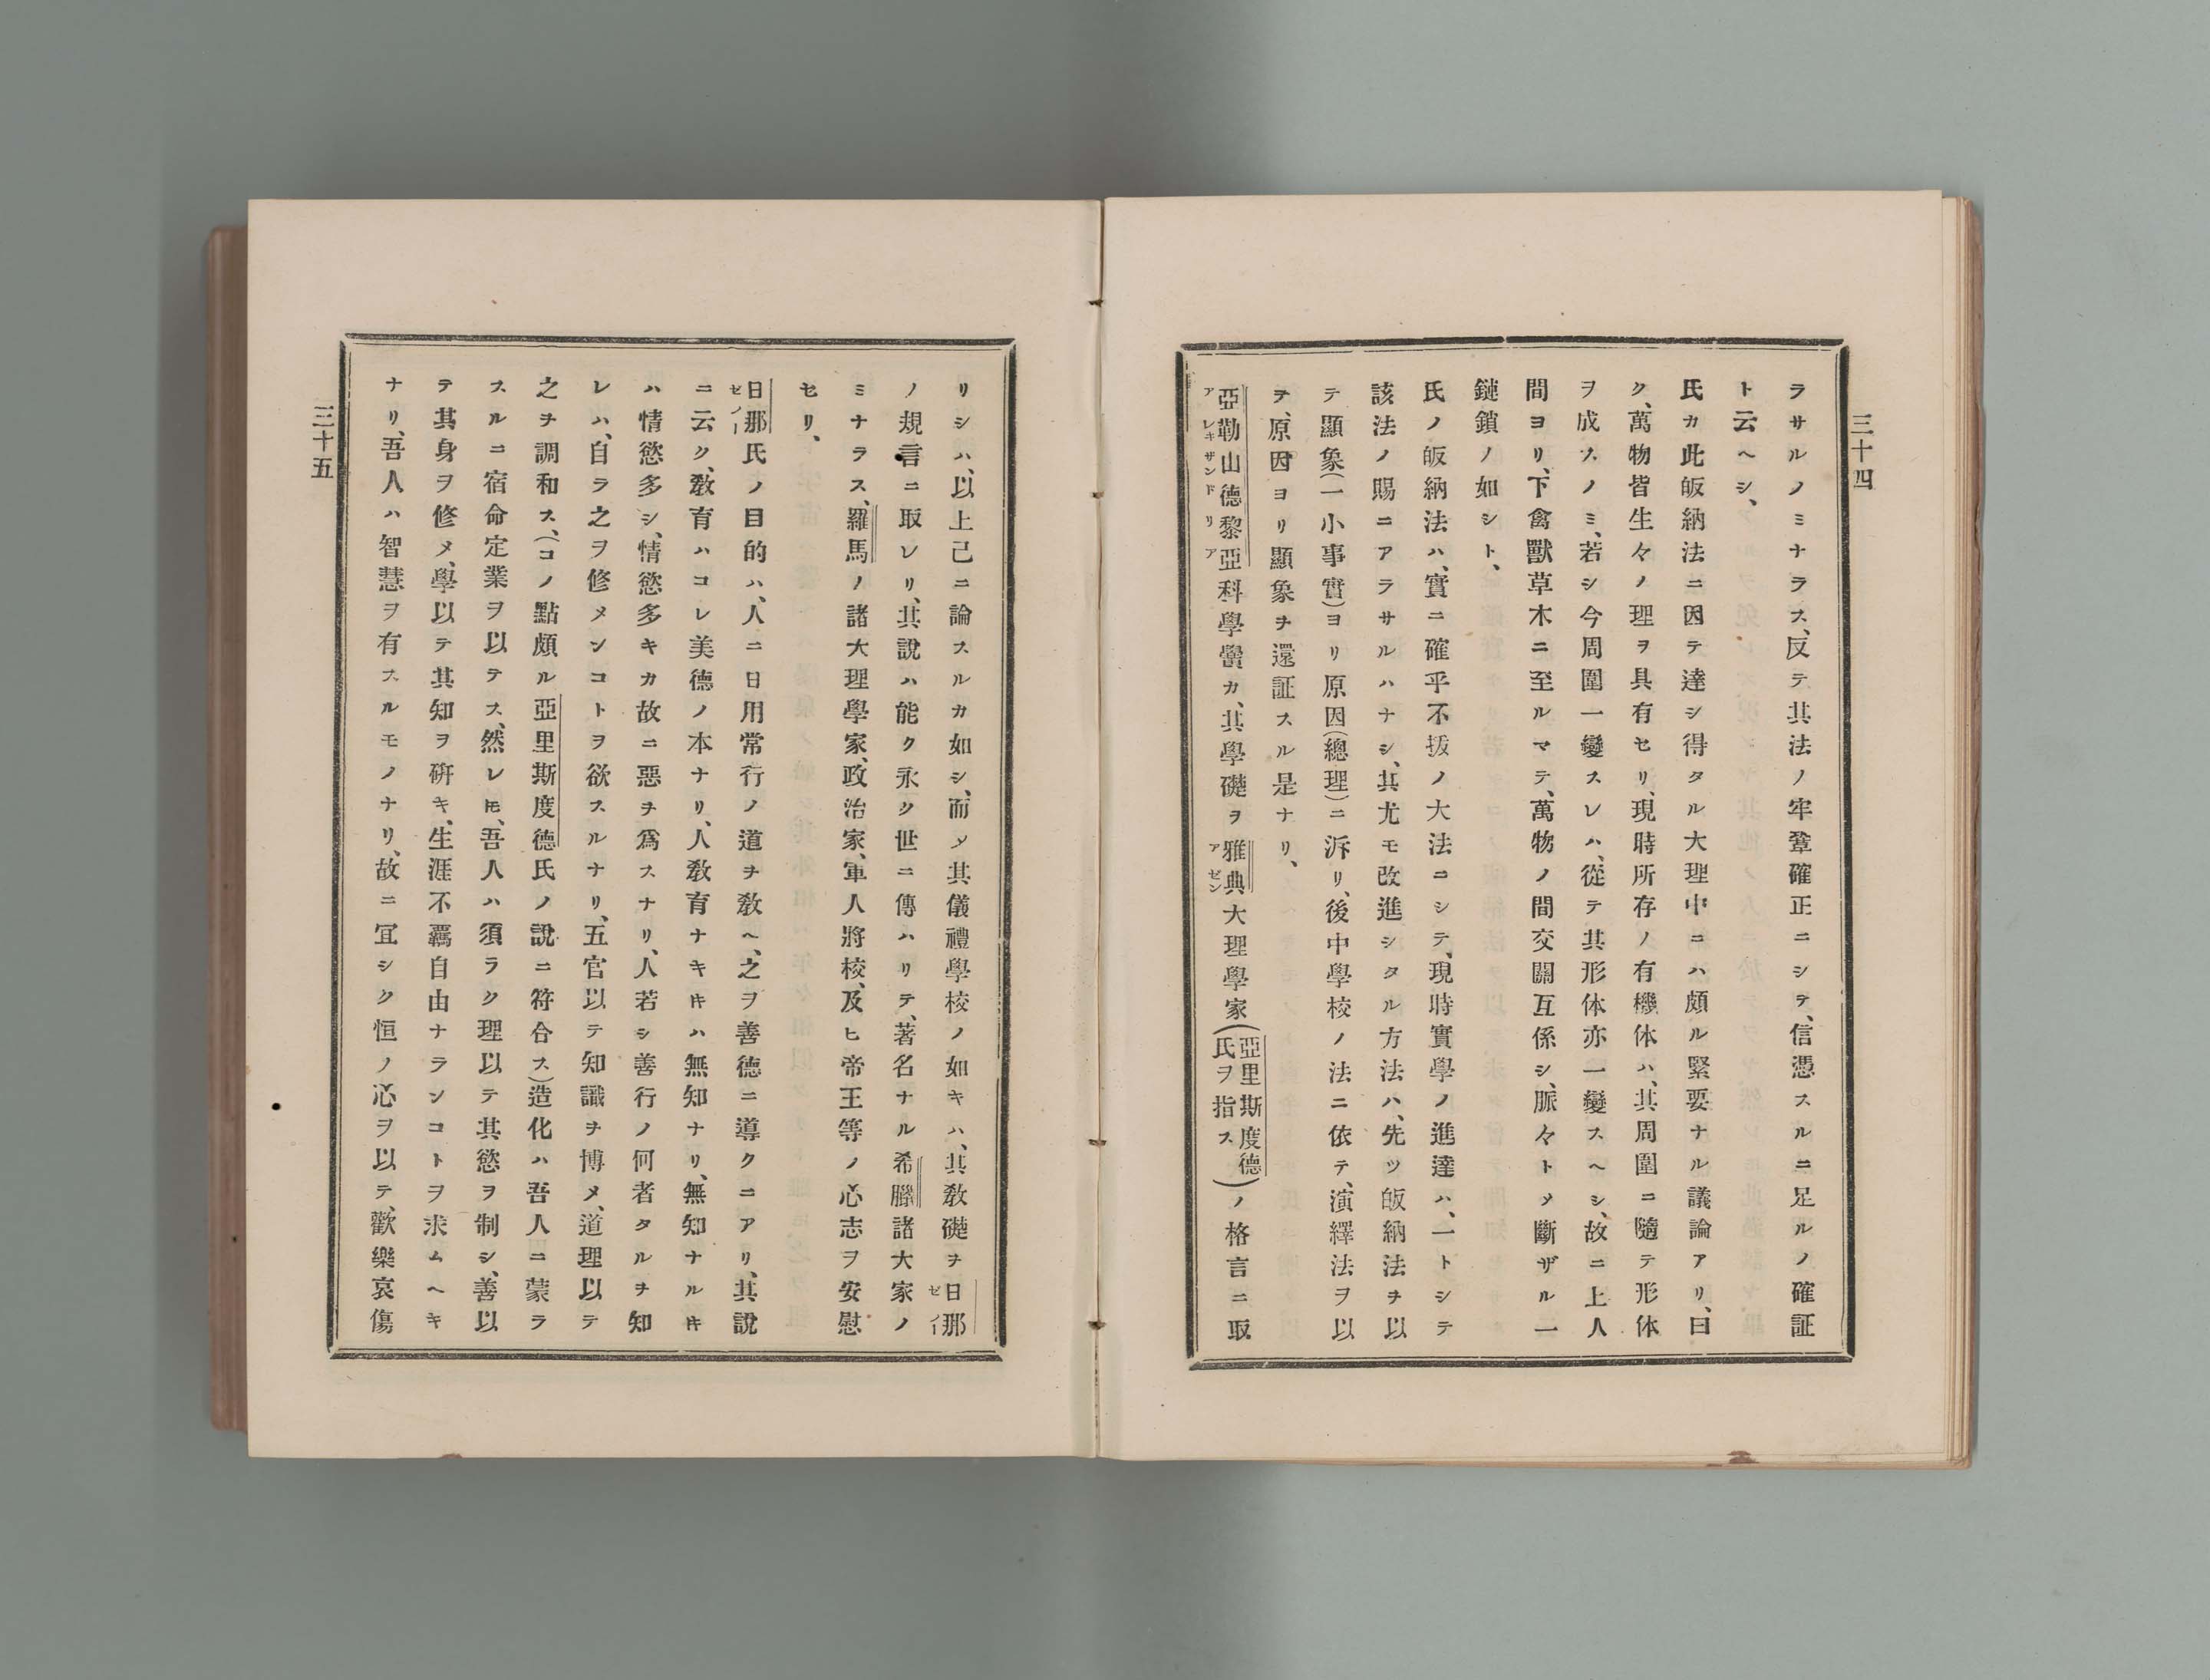 三十四
ラサルノミナラス、反テ其法ノ牢鞏確正ニシテ、信憑スルニ足ルノ確証
ト云ヘシ、
氏カ此皈納法ニ因テ達シ得タル大理中ニハ頗ル緊要ナル議論アリ、曰
ク、萬物皆生々ノ理ヲ具有セリ、現時所存ノ有機体ハ、其周圍ニ隨テ形体
ヲ成スノミ、若シ今周圍一變スレハ、從テ其形体亦一變スヘシ、故ニ上人
間ヨリ、下禽獸草木ニ至ルマテ、萬物ノ間交關互係シ、脈々トメ斷ザル一
鏈鎖ノ如シト、
氏ノ皈納法ハ、實ニ確乎不拔ノ大法ニシテ、現時實學ノ進達ハ、一トシテ
該法ノ賜ニアラサルハナシ、其尤モ改進シタル方法ハ、先ツ皈納法ヲ以
テ顯象(一小事實)ヨリ原因(總理)ニ泝リ、後中學校ノ法ニ依テ、演繹法ヲ以
テ、原因ヨリ顯象ヲ還証スル是ナリ、
亞勒山德黎亞科學黌カ、其學礎ヲ雅典大理學家(亞里斯度德氏ヲ指ス)ノ格言ニ取
アレキザンドリア
アゼン
三十五
リシハ、以上己ニ論スルカ如シ、而メ其儀禮學校ノ如キハ、其教礎ヲ日那
ゼイ
ノ規言ニ取レリ、其說ハ能ク永ク世ニ傳ハリテ、著名ナル希臘諸大家ノ
ミナラス、羅馬ノ諸大理學家、政治家、軍人將校、及ヒ帝王等ノ心志ヲ安慰
セリ、
日那氏ノ目的ハ、人ニ日用常行ノ道ヲ敎ヘ、之ヲ善德ニ導クニアリ、其說
ゼノー
ニ云ク、敎育ハコレ美德ノ本ナリ、人敎育ナキㇳキハ無知ナリ、無知ナルㇳキ
ハ情慾多シ、情慾多キカ故ニ惡ヲ爲スナリ、人若シ善行ノ何者タルヲ知
レハ、自ラ之ヲ修メンコトヲ欲スルナリ、五官以テ知識ヲ博メ、道理以テ
之ヲ調和ス、(コノ點頗ル亞里斯度德氏ノ說ニ符合ス)造化ハ吾人ニ蒙ラ
スルニ宿命定業ヲ以テス、然レㇳモ、吾人ハ須ラク理以テ其慾ヲ制シ、善以
テ其身ヲ修メ、學以テ其知ヲ硏キ、生涯不羈自由ナランコトヲ求ムヘキ
ナリ、吾人ハ智慧ヲ有スルモノナリ、故ニ宜シク恒ノ心ヲ以テ、歡樂哀傷